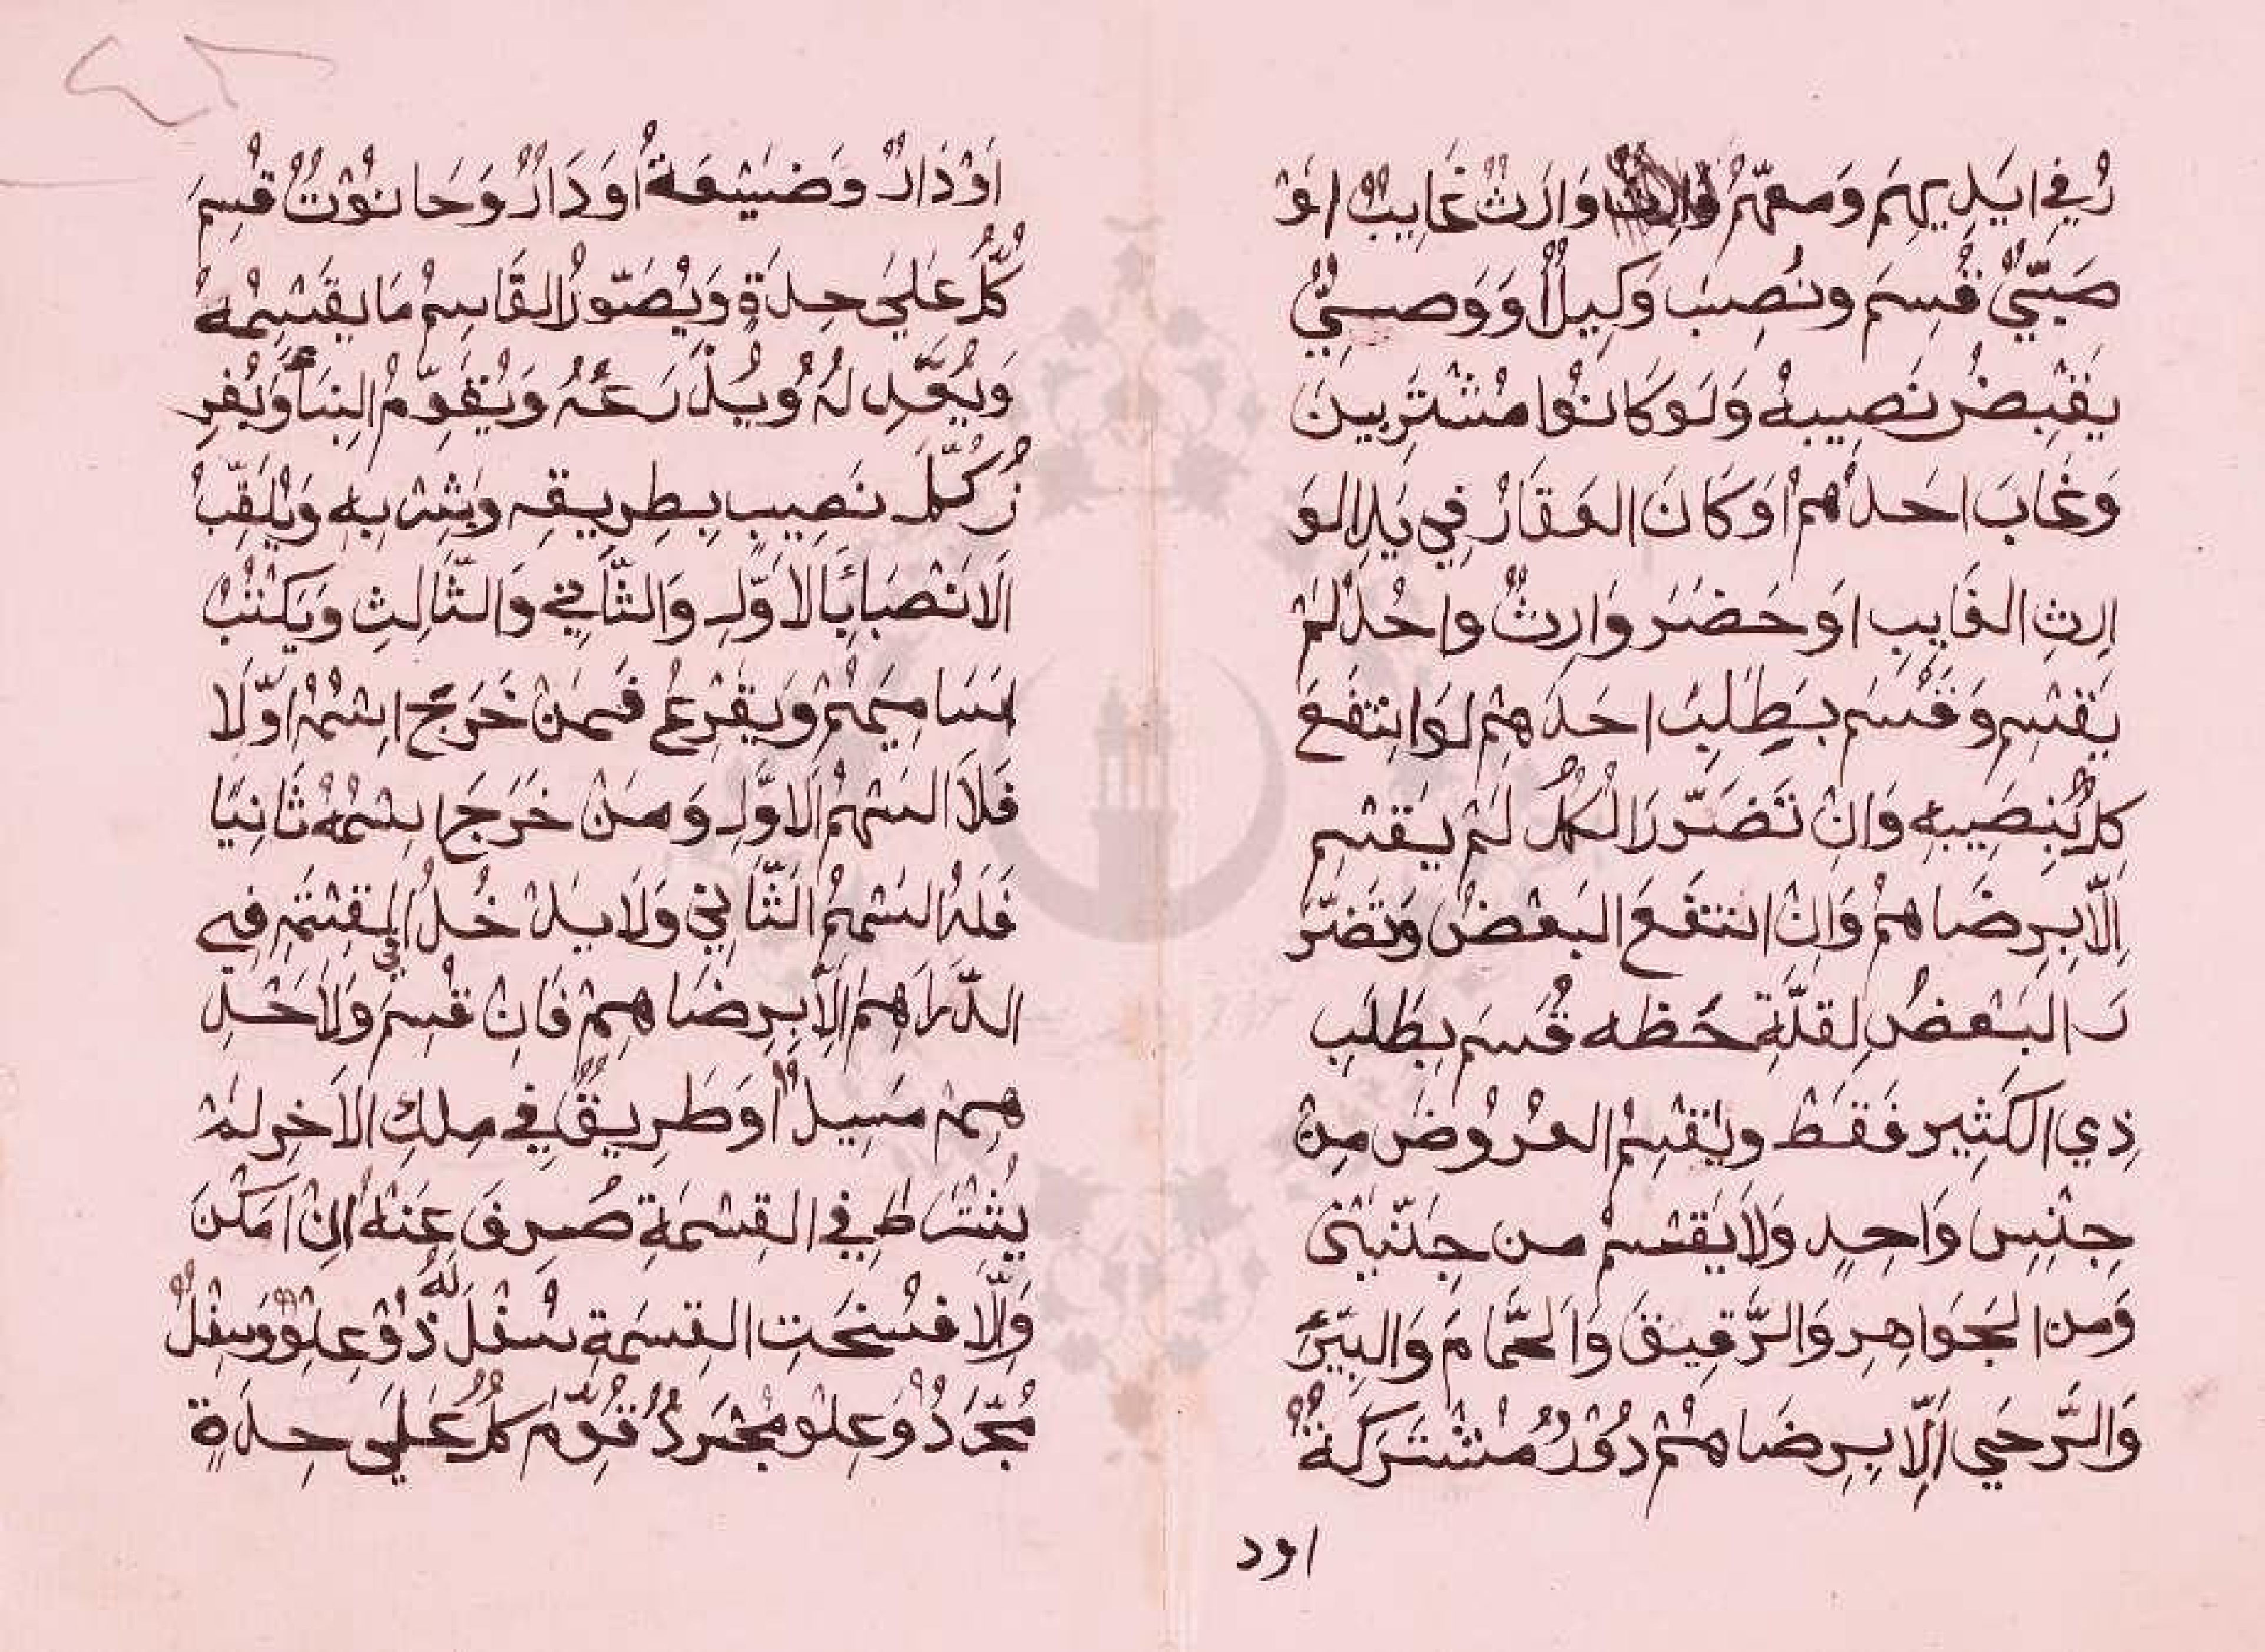 رُ في ايَدِيهِم وَمعهُمْ وَارَثٌ غَايِبٌ اوْ
صَبّيٌ قُسِمَ ونُصِبَ وَكِيلٌ اوَوَصيٌّ
يقْبِضُ نَصِيبهُ وَلَوكَانُوا مُشْتَرِيينَ
وَغَابَ احَدهُمْ اوَكَانَ العَقَارُ فِي يَدِ الوَ
ارِثِ الغَايِبِ اوَحَضَرَ وَارِثٌ واحُدٌ لَمْ
يَقْسِم وَقَسَم بطَلَبِ احَدَهِمْ لوَانتفَعَ
كلٌّ بِنصِيبهِ وَانِ تَضَرّرَ الكُلُّ لَمْ يَقسِم
اِلّابِرِضَاهمْ وَانْ انتفَعَ البَعْضُ وَتَضَرّ
رَ البَعْضُ لِقلّةِ حَظه قُسَم بِطَلَبِ
ذِي الكَثِير فَقَطْ ويُقْسِمُ العُرُوضَ مِنْ
جِنْسٍ وَاحِدٍ وَلَايَقسمُ من جِنّسَيْنِ
وَمن الجَوَاهِرِ وَالرَّقِيقَ وَالحمَّامَ وَالبيرَ
وَالرَّحَي اِلّا بِرِضَاهمْ دُوْرٌ مُشْتَرَكَةٌ
اود
اَوْدَارٌ وَضَيْعَةٌ اوَدَارٌ وَحَانوُتٌ قُسِمَ
كلٌّ عَليَ حِدَةٍ وَيُصَوّرُ القَاسِمُ مَا يقَسِمُهُ
وَيُعَدِّلهُ وُيذْرَعُهُ وَيُقوِّمُ البِنَأَ وَيُفرِ
زُ كُلَّ نَصِيبٍ بِطرِيقهِ وَشِرْبهِ وَيُلَقِّبُ
الاَنْصَبَائَ بَالاوّلِ وَالثَّانِي وَالثّالِثِ وَيَكْتُبُ
اسَامِيَهُمْ وَيقْرِعُ فَمَنْ خَرَجَ اسْمُهُ اوّلَا
فَلَهَ السَهمُ الاوَّلِ وَمَنْ خَرَجَ اسْمُهُ ثَانِيًا
فَلَهُ السَهمُ الثَّانِي وَلَا يدْخُلُ في القِسْمَةِ
الدّرَاهِم اِلّابِرِضَاهِمْ فَانِ قُسِمَ وَلاَحَدِ
هِمْ مَسِيلٌ اوَطَرِيقٌ فِي مِلكِ الاَخِر لمْ
يُشْتَرَط فِي القِسْمَةِ صُرِفَ عَنهُ اِنْ امَكنَ
وَاِلّا فسُخَتِ القِسَمة سُفْلٌ لَهُ ذُوْعِلْو وَسِفلٌ
مُجَرّدٌ وعِلْو مُجَرّدٌ قُوِّمَ كلٌّ عَليَ حِدَةٍ